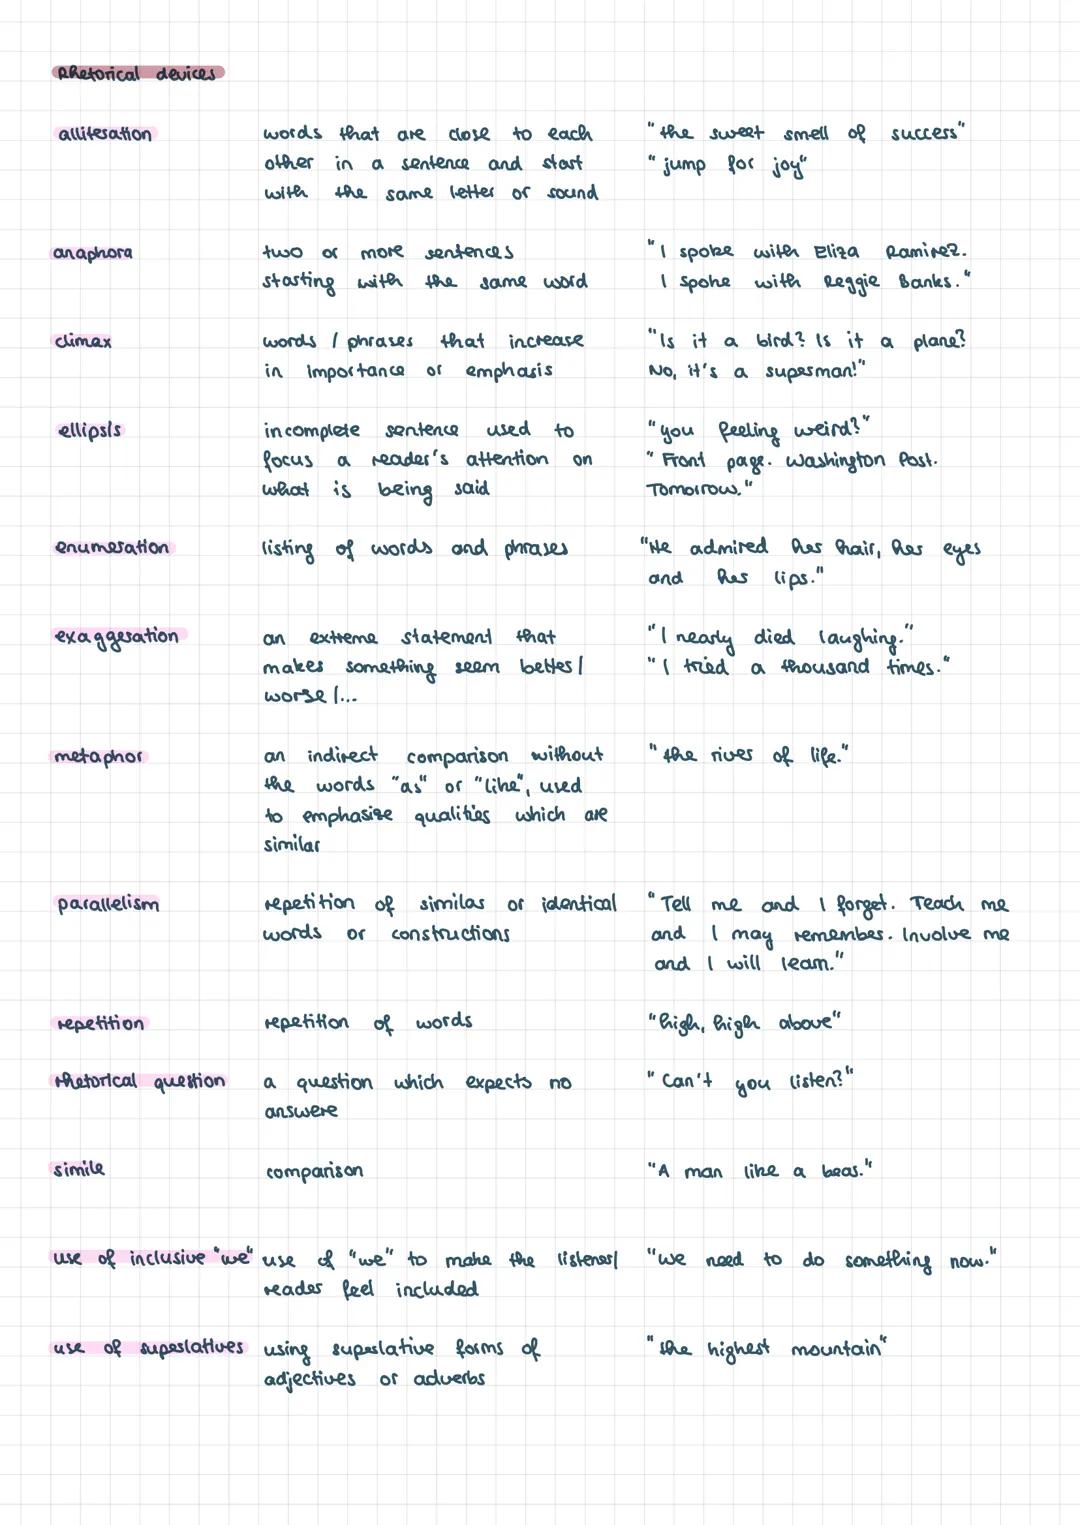 Rhetorical devices
alliteration words that are close to each "the sweet smell of success"
other in a sentence and start "jump for joy"
with the same letter or sound
anaphora two or more sentences "I spoke with Eliza Ramirez.
starting with the same word I spoke with Reggie Banks."
climax words / phrases that increase "Is it a bird? Is it a plane?
in importance or emphasis No, it's a superman!"
ellipsis incomplete sentence used to "you feeling weird?"
focus a reader's attention on "Front page. Washington Post.
what is being said Tomorrow."
enumeration listing of words and phrases "He admired her hair, her eyes
and her lips."
exaggeration an extreme statement that "I nearly died laughing."
makes something seem better/ "I tried a thousand times."
worse/...
metaphor an indirect comparison without "the river of life."
the words "as" or "like", used
to emphasize qualities which are
similar
parallelism repetition of similar or identical "Tell me and I forget. Teach me
words or constructions and I may remember. Involve me
and I will learn."
repetition repetition of words "high, high above"
rhetorical question a question which expects no "Can't you listen?"
answere
simile comparison "A man like a bear."
use of inclusive "we" use of "we" to make the listener/ "We need to do something now."
reader feel included
use of superlatives using superlative forms of "the highest mountain"
adjectives or adverbs